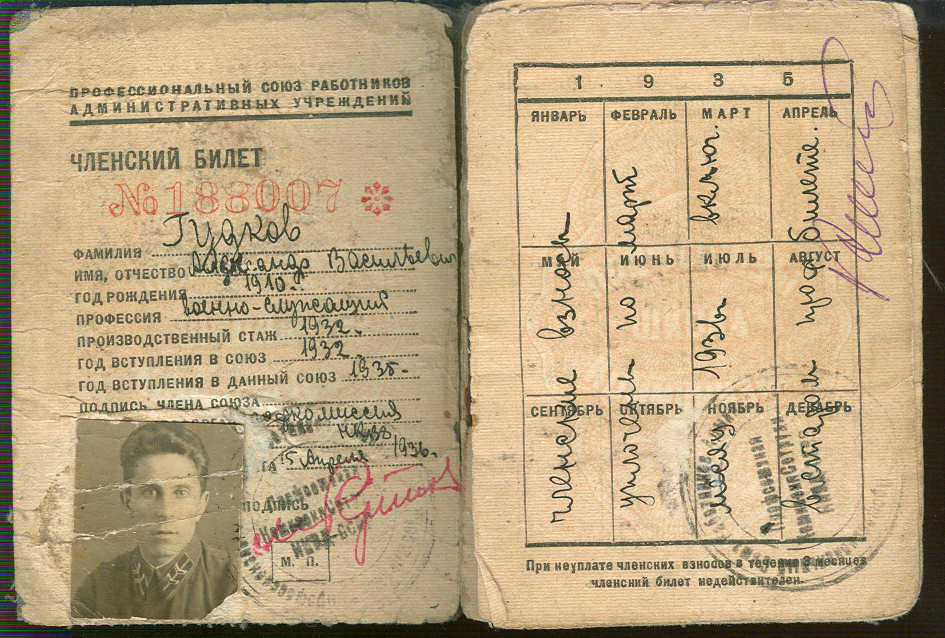 ПРОФЕССИОНАЛЬНЫЙ СОЮЗ РАБОТНИКОВ
АДМИНИСТРАТИВНЫХ УЧРЕЖДЕНИЙ
ЧЛЕНСКИЙ БИЛЕТ
№ 188007
ФАМИЛИЯ Гудков
ИМЯ, ОТЧЕСТВО Александр Васильевич
ГОД РОЖДЕНИЯ 1910.
ПРОФЕССИЯ военно-служащий
ПРОИЗВОДСТВЕННЫЙ СТАЖ 1932.
ГОД ВСТУПЛЕНИЯ В СОЮЗ 1932
ГОД ВСТУПЛЕНИЯ В ДАННЫЙ СОЮЗ 1935.
ПОДПИСЬ ЧЛЕНА СОЮЗА
комиссия
НКВД
15 Апреля 1936.
ПОДПИСЬ
М. П.
1 9 3 5
ЯНВАРЬ ФЕВРАЛЬ МАРТ АПРЕЛЬ
МАЙ ИЮНЬ ИЮЛЬ АВГУСТ
СЕНТЯБРЬ ОКТЯБРЬ НОЯБРЬ ДЕКАБРЬ
членские взносы
уплочены по март
месяц 1936 включ.
в старом профбилете.
При неуплате членских взносов в течение 3 месяцев
членский билет недействителен.